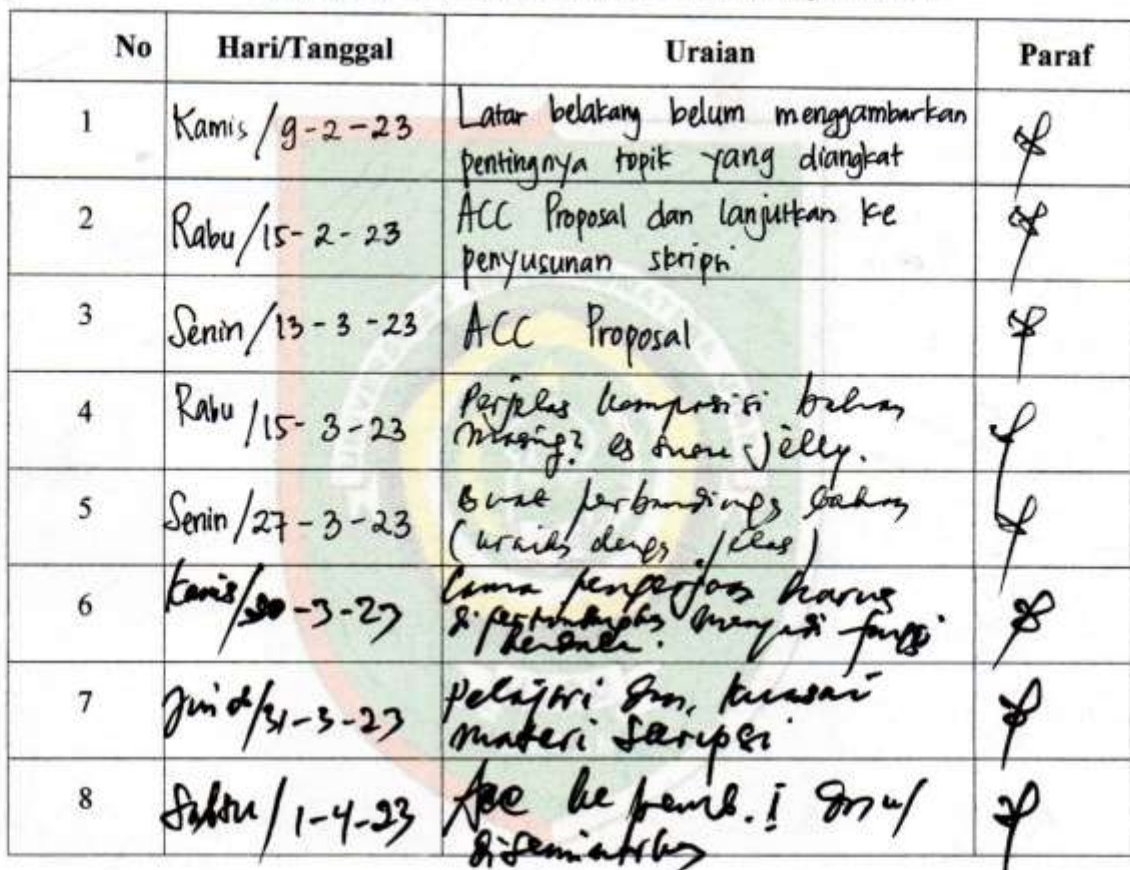 No Hari/Tanggal Uraian Paraf
1 Kamis / 9-2-23 Latar belakang belum menggambarkan
pentingnya topik yang diangkat
2 Rabu / 15-2-23 ACC Proposal dan lanjutkan ke
penyusunan skripsi
3 Senin / 13-3-23 ACC Proposal
4 Rabu / 15-3-23 Perjelas komposisi bahan
masing2 es snow Jelly.
5 Senin / 27-3-23 Buat perbandingan bahan
(uraikan dengan jelas)
6 Kamis / 30-3-23 Lama pengerjaan harus
menjadi fungsi
7 Jum'at / 31-3-23 pelajari dan kuasai
materi Skripsi
8 Sabtu / 1-4-23 Acc ke pemb. I
diseminarkan